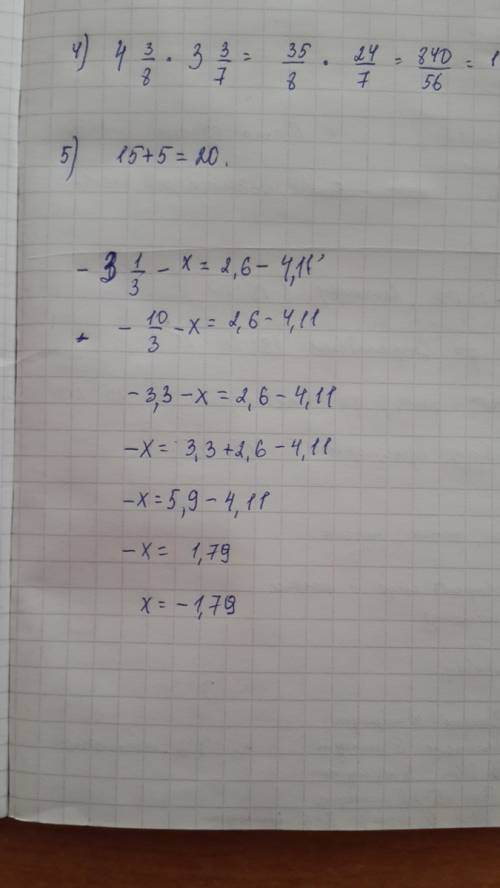 4) 4 3/8 · 3 3/7 = 35/8 · 24/7 = 840/56 = 1
5) 15+5=20.
- 3 1/3 - x = 2,6 - 4,11
- 10/3 - x = 2,6 - 4,11
-3,3 - x = 2,6 - 4,11
-x = 3,3 + 2,6 - 4,11
-x = 5,9 - 4,11
-x = 1,79
x = -1,79